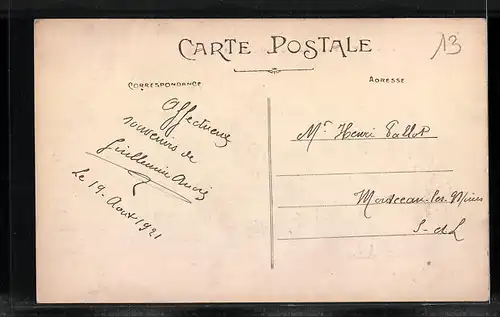 CARTE POSTALE
13
CORRESPONDANCE
ADRESSE
Affectueux
souvenirs de
Guillemin
Le 19 Août 1921
Mr Henri Pallot
Montceau-les-Mines
S-et-L